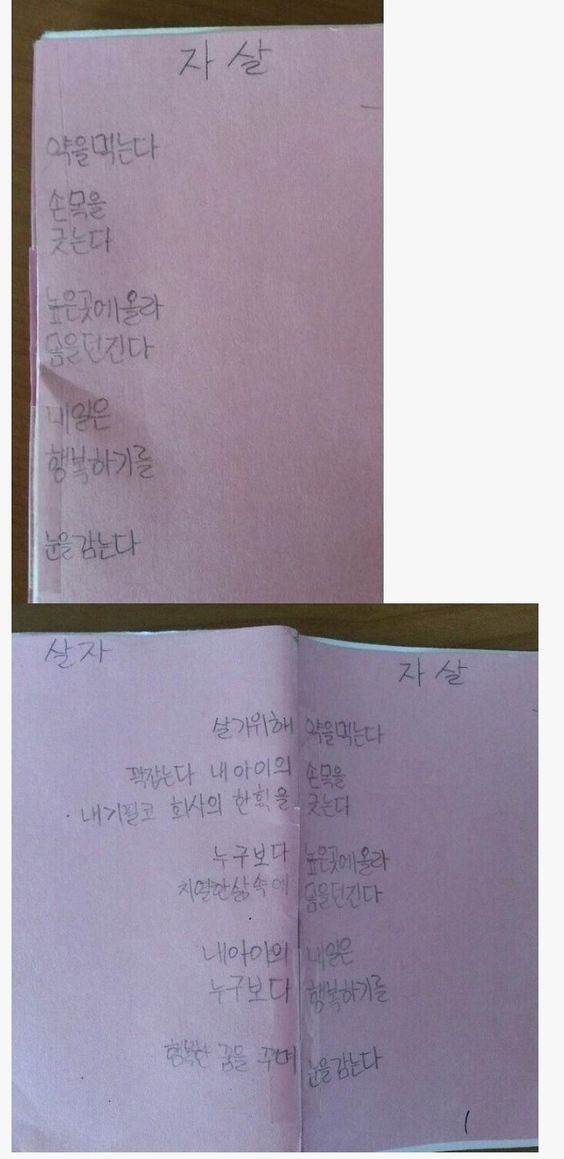 자살
약을먹는다
손목을
긋는다
높은곳에올라
몸을던진다
내일은
행복하기를
눈을감는다
살자 자살
살기위해 약을먹는다
꽉잡는다 내 아이의 손목을
내기필코 회사의 한획을 긋는다
누구보다 높은곳에올라
치열한삶속에 몸을던진다
내아이의 내일은
누구보다 행복하기를
행복한 꿈을 꾸며 눈을감는다